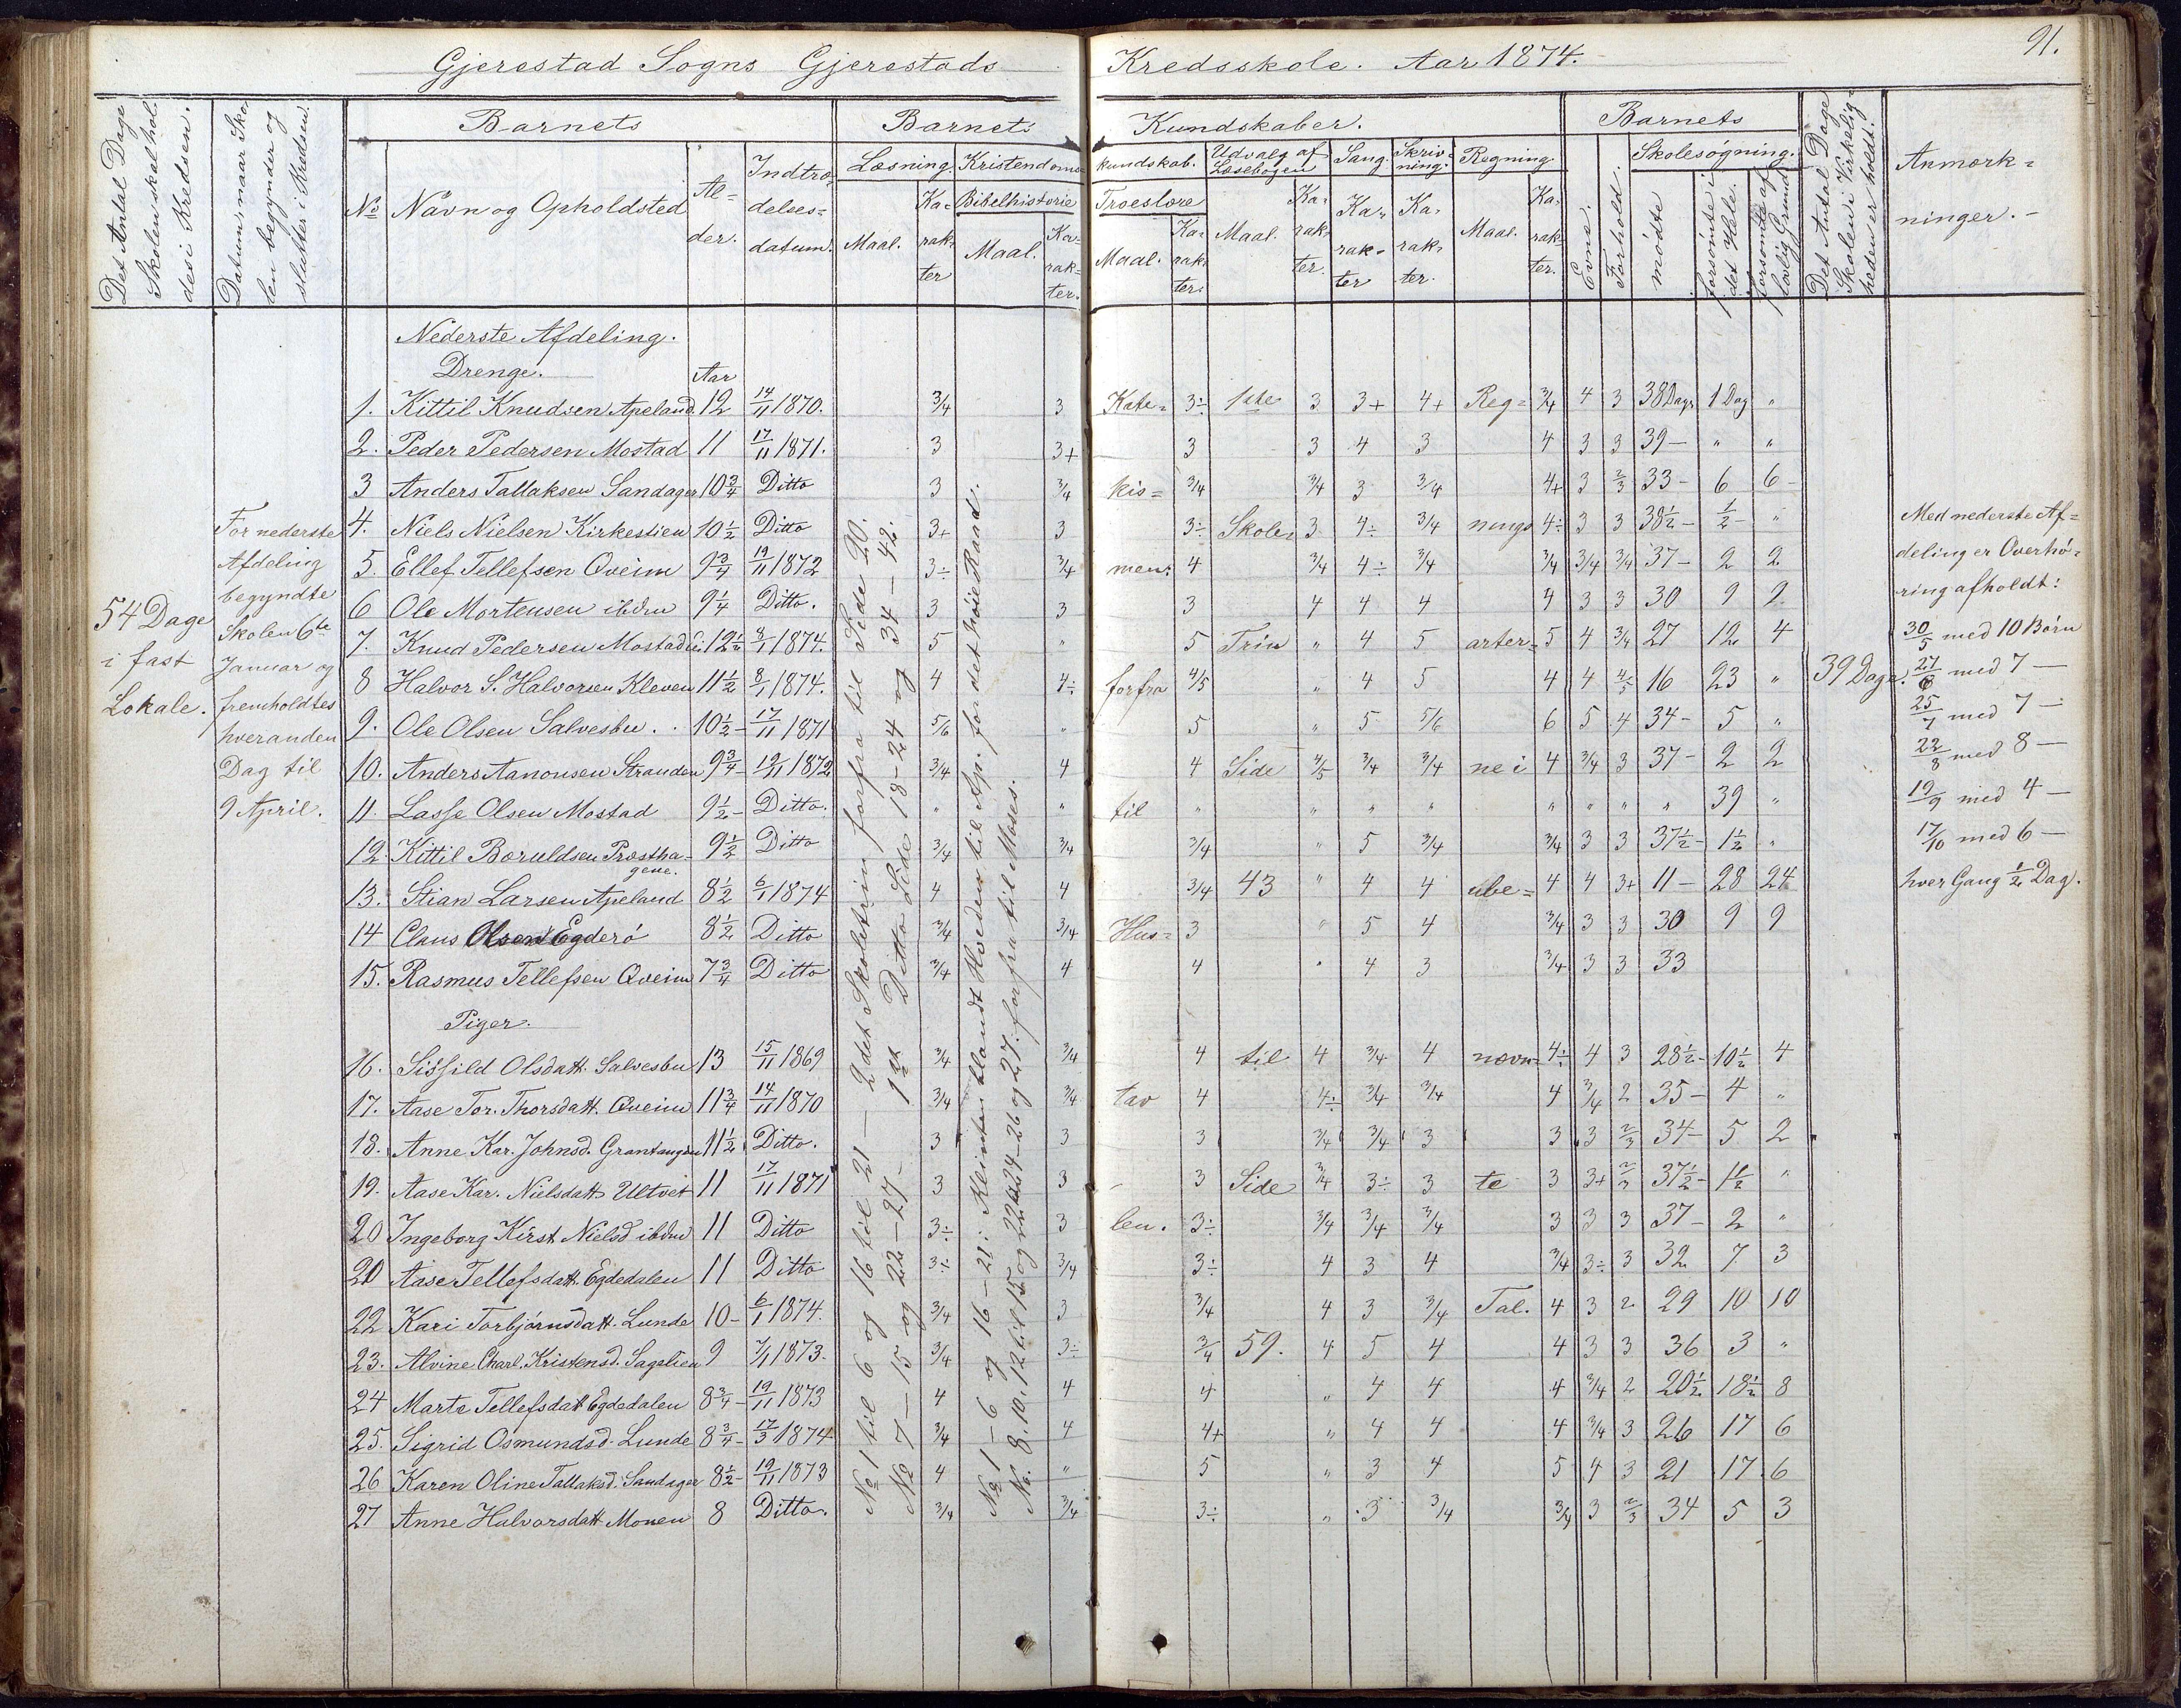 Gjerestad Sogns Gjerestads Kredsskole. Aar 1874.
91.
Det Antal Dage Skolen skal holdes i Kredsen.
Datum, naar Skolen begynder og slutter i Kredsen.
Barnets
No
Navn og Opholdsted
Alder.
Indtrædelses=datum.
Barnets Kundskaber.
Læsning. Maal. Karakter
Kristendoms=kundskab.
Bibelhistorie Maal. Karakter.
Troeslære Maal. Karakter.
Udvalg af Læsebogen Maal. Karakter.
Sang. Karakter
Skrivning. Karakter.
Regning. Maal. Karakter.
Barnets
Evne.
Forhold.
Skolesøgning.
mødte
forsømte i det Hele.
forsømte af lovlig Grund
Det Antal Dage Skolen i Virkeligheden er holdt.
Anmærkninger.-
54 Dage
i fast
Lokale.
For nederste
Afdeling
begyndte
Skolen 6te
Januar og
fremholdtes
hveranden
Dag til
9 April.
Nederste Afdeling.
Drenge.
Aar
1. Kittil Knudsen Apeland. 12 14/11 1870. 3/4 3 Kate= 3÷ 1ste 3 3+ 4+ Reg= 3/4 4 3 38 Dage 1 Dag "
2. Peder Pedersen Mostad 11 17/11 1871. 3 3+ 3 3 4 3 4 3 3 39- " "
3 Anders Tallaksen Sandager 10 3/4 Ditto 3 3/4 kis= 3/4 3/4 3 3/4 4+ 3 2/3 33- 6 6-
4. Niels Nielsen Kirkestien 10 1/2 Ditto 3+ 3 3÷ Skole= 3 4÷ 3/4 nings 4÷ 3 3 38 1/2- 1/2- "
5. Ellef Tellefsen Qveim 9 3/4 19/11 1872 3÷ 3/4 men: 4 3/4 4÷ 3/4 3/4 3/4 3/4 37- 2 2
6 Ole Mortensen ibdm 9 1/4 Ditto. 3 3 3 4 4 4 4 3 3 30 9 9
7. Knud Pedersen Mostad 12 1/2 8/1 1874. 5 " 5 Trin " 4 5 arter= 5 4 3/4 27 12 4
8 Halvor S. Halvorsen Kleven 11 1/2 8/1 1874. 4 4÷ forfra 4/5 " 4 5 4 4 4/5 16 23 " 39 Dage.
9. Ole Olsen Salvesbu. 10 1/2- 17/11 1871 5/6 " 5 " 5 5/6 6 5 4 34- 5 "
10. Anders Aanonsen Stranden 9 3/4- 19/11 1872 3/4 4 4 Side 4/5 3/4 3/4 ne i 4 3/4 3 37- 2 2
11. Lasse Olsen Mostad 9 1/2- Ditto. " " til " " " " " " " " 39 "
12. Kittil Boruldsen Præsthagene. 9 1/2 Ditto 3/4 3/4 3/4 " 5 3/4 3/4 3 3 37 1/2- 1 1/2 "
13. Stian Larsen Apeland 8 1/2 6/1 1874 4 4 3/4 43 " 4 4 ube= 4 4 3+ 11- 28 24
14 Claus Olsen Egderø 8 1/2 Ditto 3/4 3/4 Hus= 3 " 5 4 3/4 3 3 30 9 9
15. Rasmus Tellefsen Qveim 7 3/4 Ditto 3/4 4 4 " 4 3 3/4 3 3 33
Piger.
16. Sissild Olsdatt. Salvesbu 13 15/11 1869 3/4 3/4 4 til 4 3/4 4 nævn= 4÷ 4 3 28 1/2- 10 1/2 4
17. Aase Tor. Thorsdatt. Qveim 11 3/4 14/11 1870 3/4 3/4 tav 4 4÷ 3/4 3/4 4 3/4 2 35- 4 "
18. Anne Kar. Johnsd. Grantangen 11 1/2 Ditto. 3 3 3 3/4 3/4 3 3 3 2/3 34- 5 2
19. Aase Kar. Nielsdatt Ultvet 11 17/11 1871 3 3 3 Side 3/4 3÷ 3 te 3 3+ 2/3 37 1/2- 1 1/2 "
20 Ingeborg Kirst Nielsd ibdm 11 Ditto 3÷ 3 len. 3÷ 3/4 3/4 3/4 3 3 3 37- 2 "
20 Aase Tellefsdatt. Egdedalen 11 Ditto 3÷ 3/4 3÷ 4 3 4 3/4 3÷ 3 32 7 3
22 Kari Torbjørnsdatt. Lunde 10- 6/1 1874. 3/4 3 3/4 4 3 3/4 Tal. 4 3 2 29 10 10
23. Alvine Charl. Kristensd. Sagelien 9 7/1 1873. 3/4 3÷ 3/4 59. 4 5 4 4 3 3 36 3 "
24 Marte Tellefsdatt Egdedalen 8 3/4- 19/11 1873 4 4 4 " 4 4 4 3/4 2 20 1/2 18 1/2 8
25. Sigrid Osmundsd. Lunde 8 3/4- 17/3 1874 3/4 4 4+ " 4 4 4 3/4 3 26 17 6
26 Karen Oline Tallaksd. Sandager 8 1/2- 19/11 1873 4 " 5 " 3 4 5 4 3 21 17 6
27 Anne Halvorsdatt Monen 8 Ditto. 3/4 3/4 3÷ " 3 3/4 3/4 3 2/3 34 5 3
No 1 til 6 og 16 til 21 — 2det Skoletrin forfra til Side 20.
No 7 — 15 og 22 — 27 - 1ste Ditto Side 18-24 og 34-42.
No 1 - 6 og 16 - 21: Klinten blandt Hveden til Ap. for det høie Raad.
No. 8, 10, 12 til 15 og 24-26 og 27. forfra til Moses.
Med nederste Af=
deling er Overhø=
ring afholdt:
30/5 med 10 Børn
27/6 med 7 —
25/7 med 7 —
22/8 med 8 —
19/9 med 4 —
17/10 med 6 —
hver Gang 1/2 Dag.